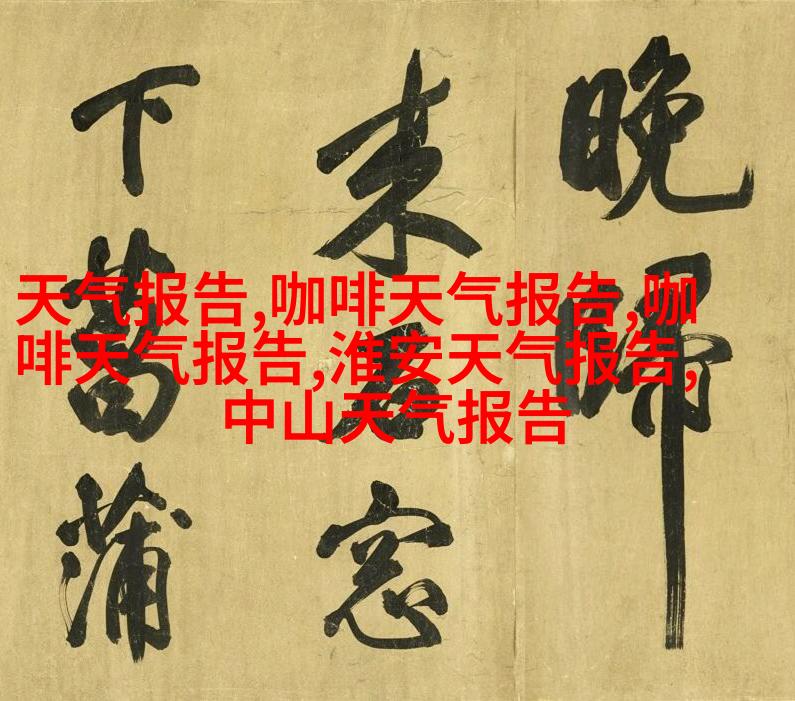 晚歸
来窓
下菖蒲
天气报告,咖啡天气报告,咖
啡天气报告,淮安天气报告,
中山天气报告